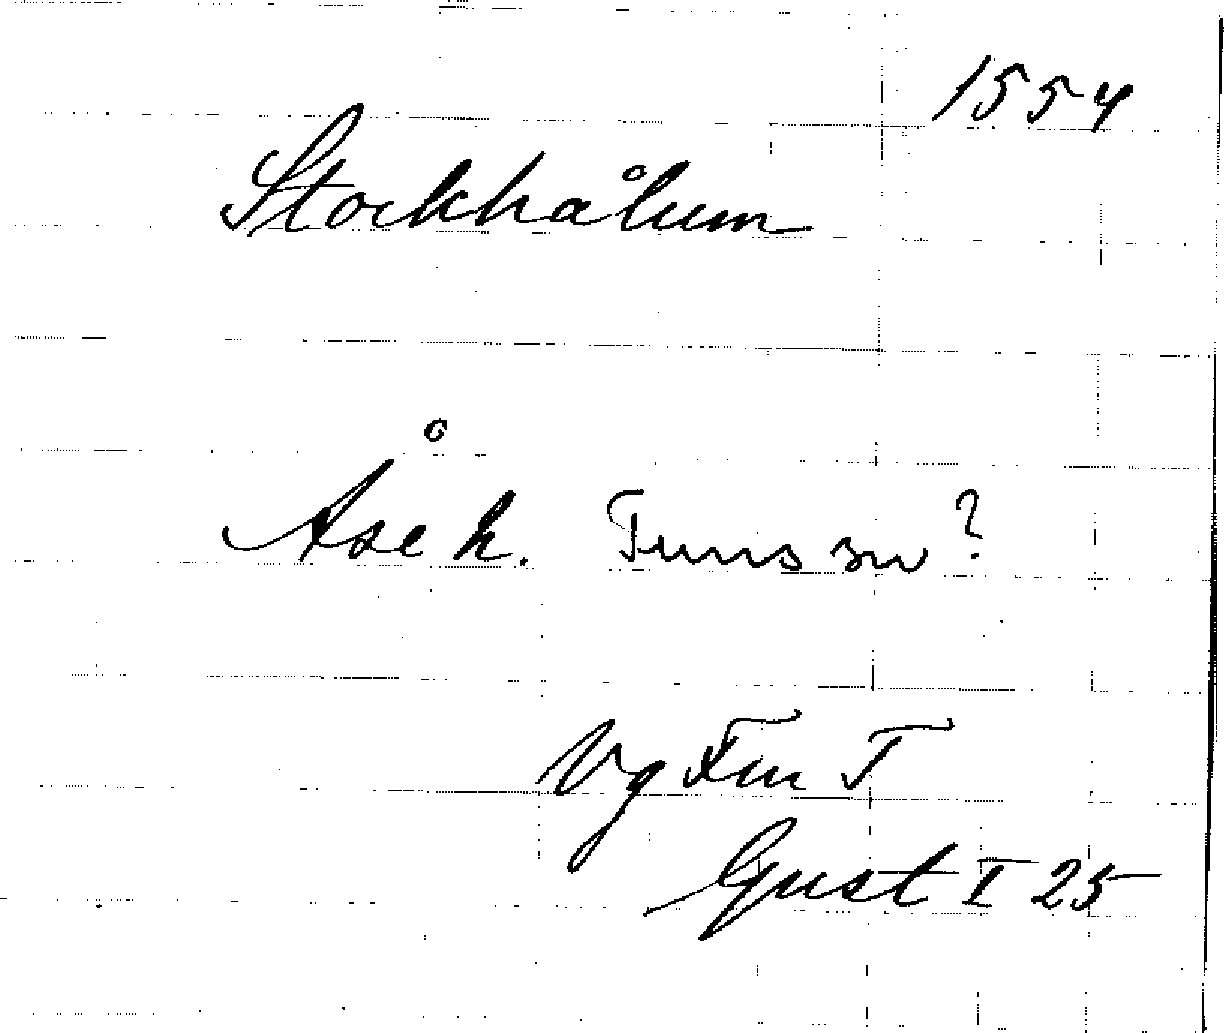 1554
Stockhålum
Åse h. Tuns sn?
Vg Fen T
Gust I 25